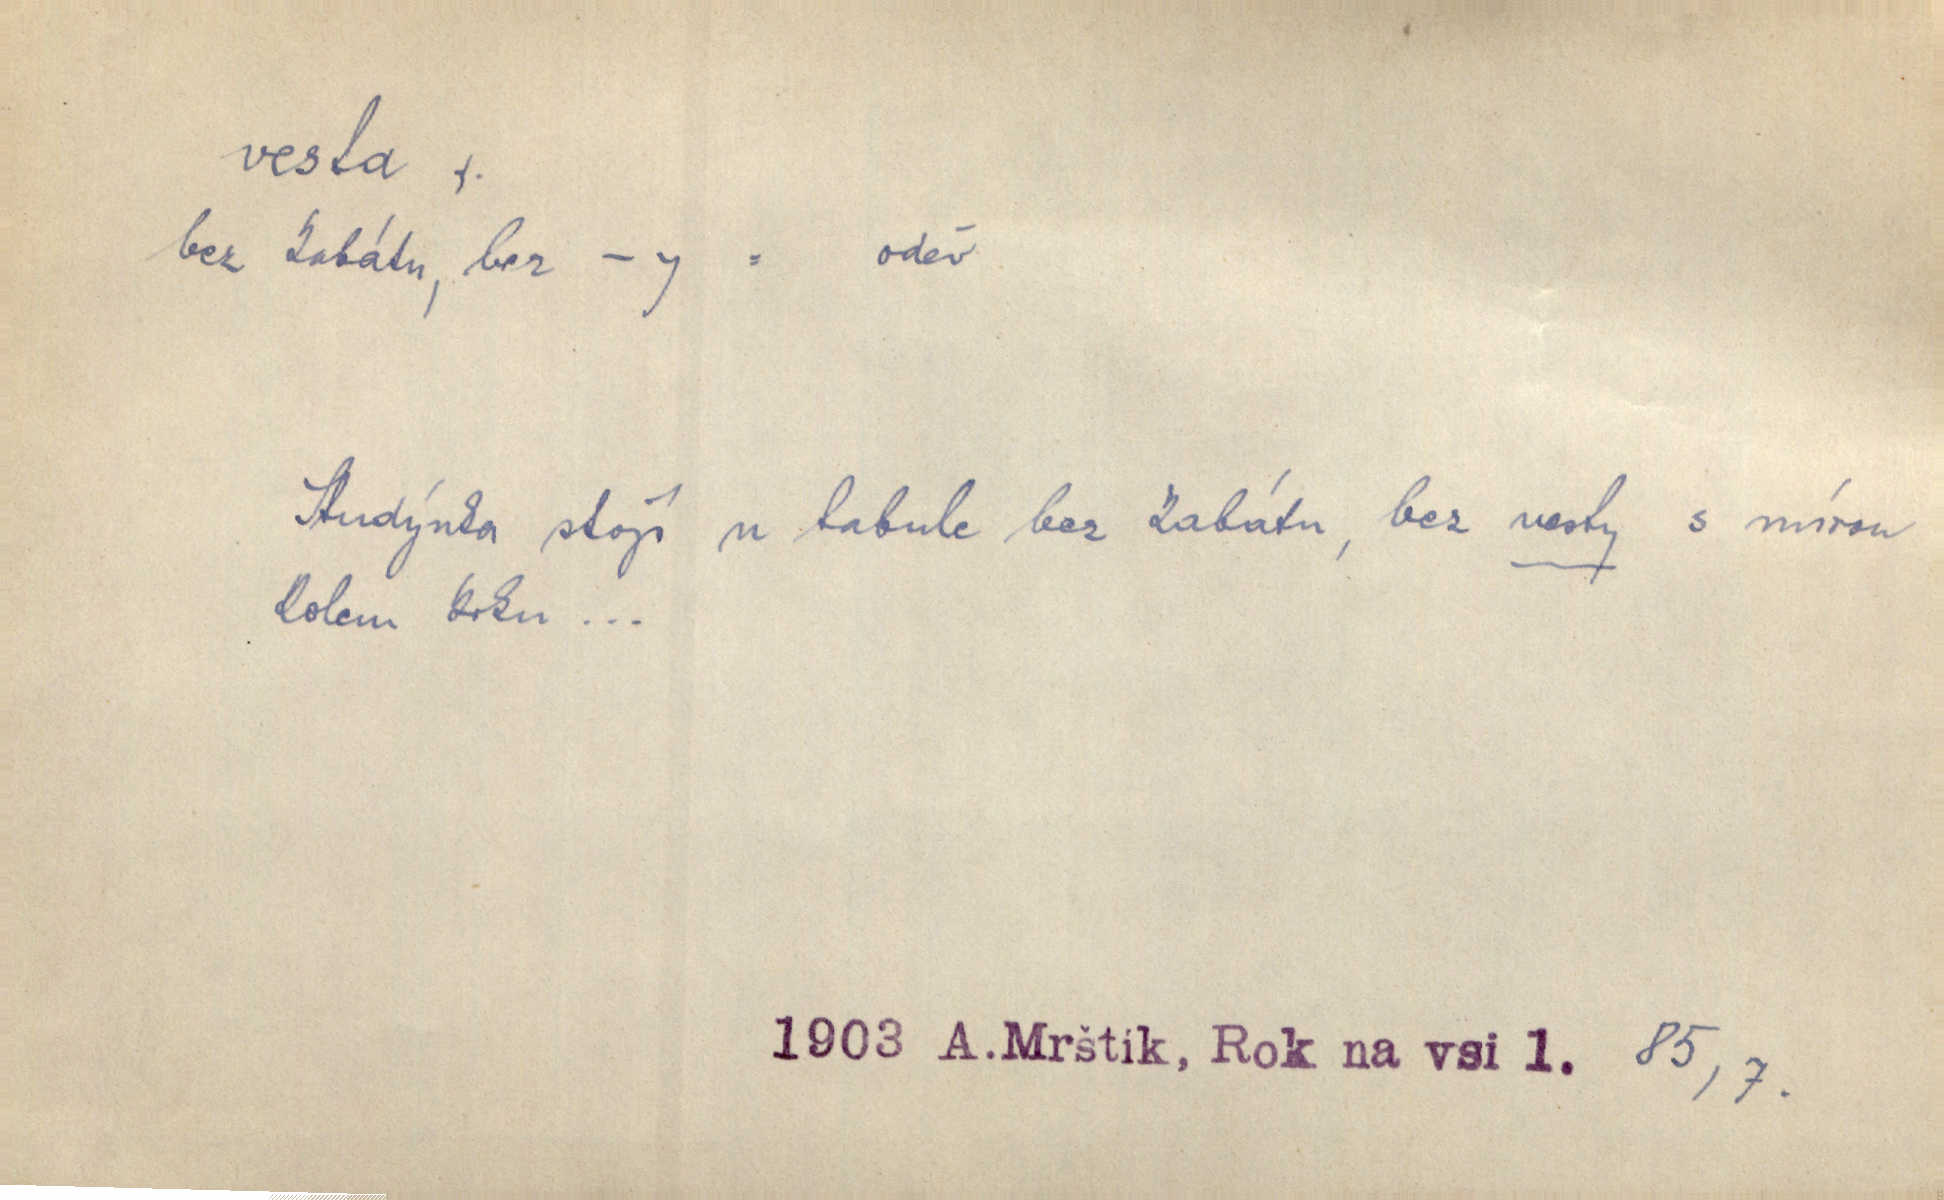 vesta f.
bez kabátu, bez – y = oděv
Studýnka stojí u tabule bez kabátu, bez vesty s mírou
kolem krku ...
1903 A.Mrštík, Rok na vsi 1. 85, 7.